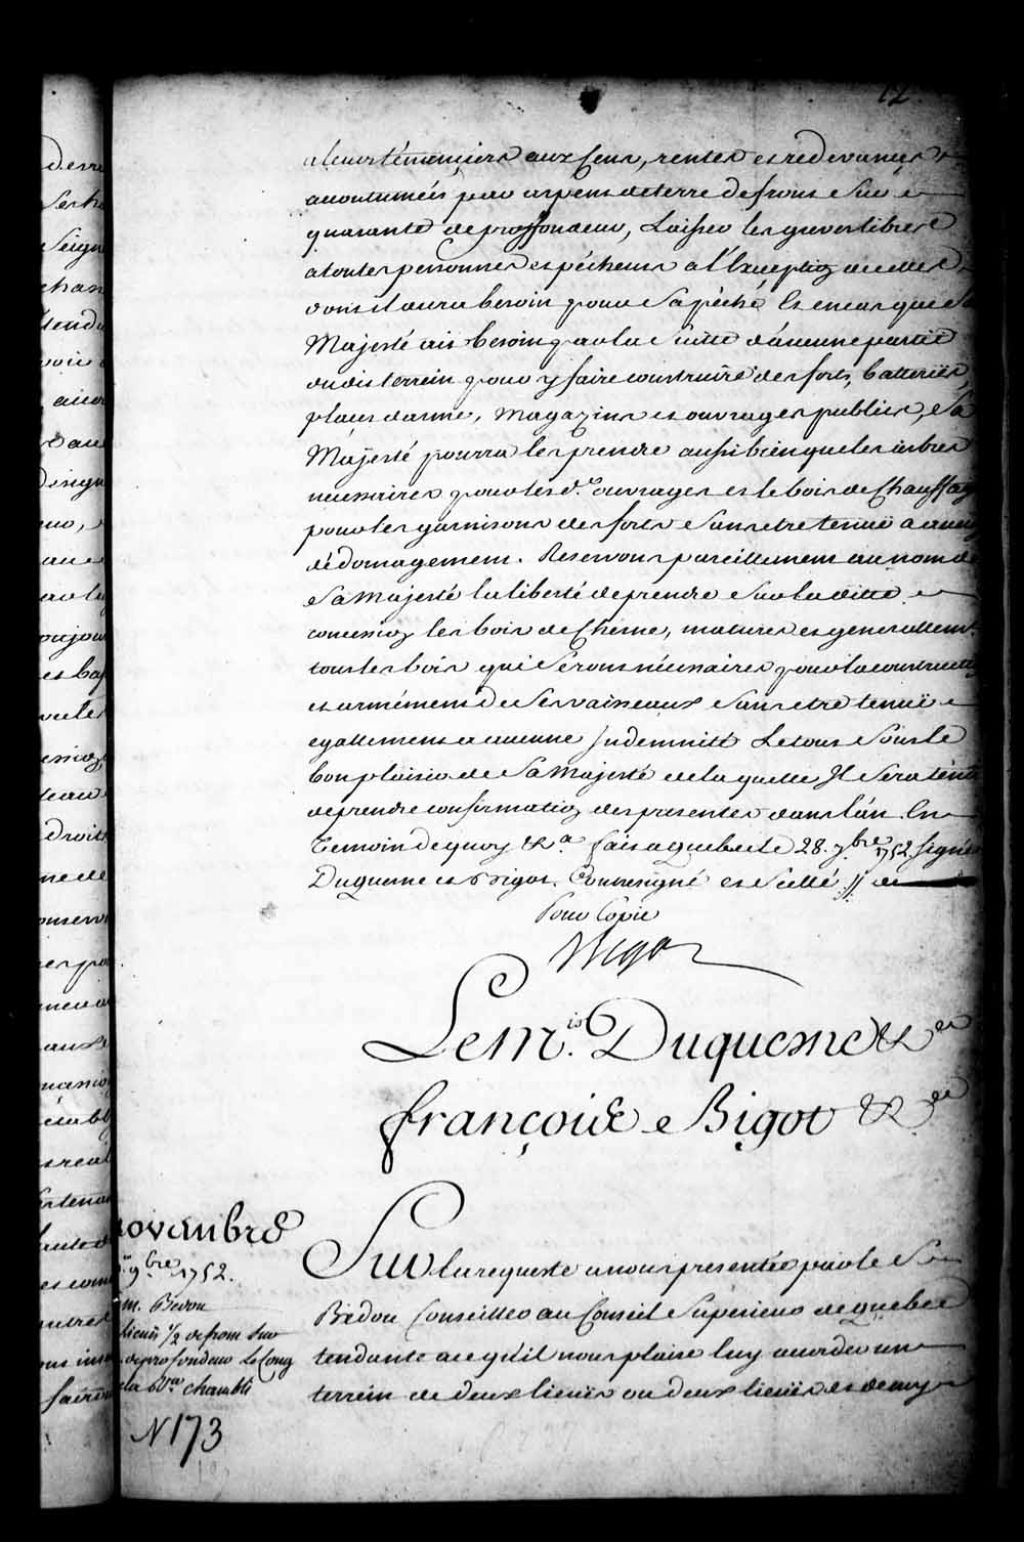 12
a leurs tenanciers aux Cens, rentes et redevances
acoutumées par arpens de terre de front Sur
quarante de proffondeur, Laisser les greves libres
a toutes personnes et pécheurs a l'Exception de celles
dont il aura besoin pour Sa pèche, Et en cas que Sa
Majesté ait besoin par la Suitte d'aucune partie
dudit terrein pour y faire construire des forts, batteries,
places darme, Magazins et ouvrages publics, Sa
Majesté pourra les prendre aussi bien que les arbres
necessaires pour les d.s ouvrages et le bois de Chauffage
pour les garnisons des forts Sans etre tenuë a aucun
dédomagement. Reservons pareillement au nom de
Sa Majesté la liberté de prendre Sur la ditte
concession les bois de Chesne, matures et generallemt.
tous les bois qui Seront nécessaires pour la construction
et armément de Ses vaisseaux Sans etre tenuë
egallement a aucune Indemnitt Le tout Sous le
bon plaisir de Sa Majesté de laquelle Il Sera tenu
de prendre confirmation des presentes dans l'an. En
Temoin de quoy &a fait a Quebec le 28. 7bre 1752 Signé
Duquesne et Bigot. Contresigné et Scellé //
Pour Copie
Bigot
Le M.is Duquesne &ca
françois Bigot &ca
Sur la requeste a nous presentée par le Sr
Bedou Conseiller au Conseil Superieur de quebec
tendante a ce qu'il nous plaise luy accorder un
terrein de deux lieuës ou deux lieuës et demy
novembre
9bre 1752.
m. Bedou
lieuës 1/2 de front Sur
de profondeur le Long
la Rre chambli
N 173